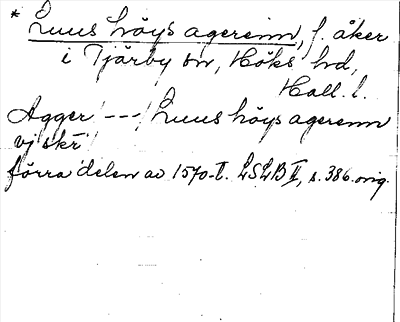 * Luus höys agerenn, f. åker
i Tjärby sn, Höks hd,
Hall. l.
Agger --- Luus höys agerenn
vj skr
förra delen av 1570-t. LSLB II, s. 386. orig.